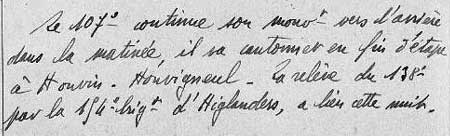 Le 107e continue son mouvt vers l'arrière
dans la matinée, il va cantonner en fin d'étape
à Houvin - Houvigneul - La relève du 138e
par la 154e brigde d'Higlanders, a lieu cette nuit.